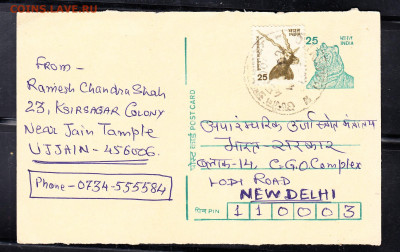 From -
Ramesh Chandra Shah
23, Ksirsagar Colony
Near Jain Tample
UJJAIN - 456006.
Phone - 0734-555584
पोस्ट कार्ड POST CARD
25
भारत INDIA
25
भारत
INDIA
अपारंपरिक उर्जा स्रोत मंत्रालय
भारत - सरकार
ब्लाक-14, C.G.O. Complex
LODI ROAD
NEW DELHI
पिन PIN
1 1 0 0 0 3
coins.lave.ru